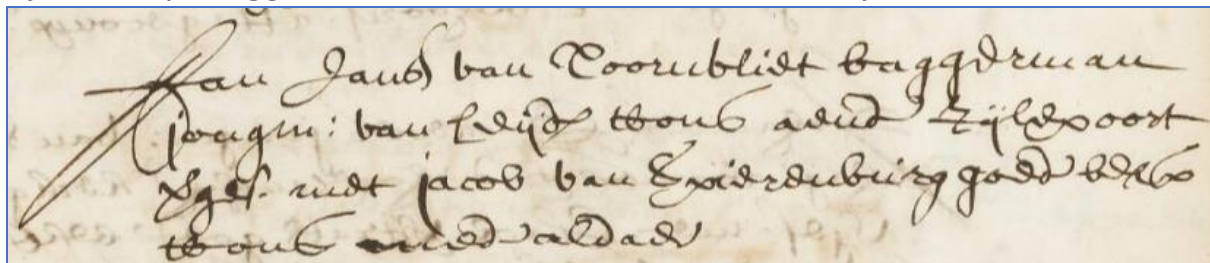 Jan Jans van Roornvliet baggerman
jongm: van Leijd wons aende Zijlepoort
verges. met jacob van Spierenburg goede bek
wons mede aldaer